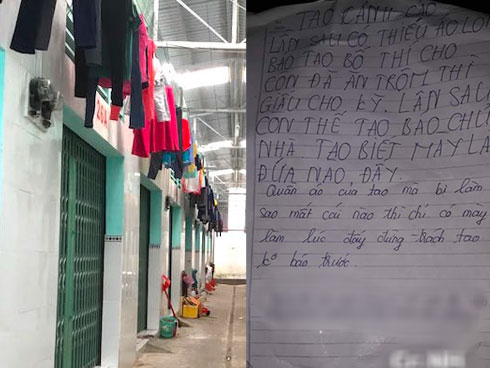 TAO CẢNH CÁO
LẦN SAU CÓ THIẾU ÁO LOT
BẢO TAO BỐ THÍ CHO
CON ĐÃ ĂN TRỘM THÌ
GIẤU CHO KỸ. LẦN SAU
CÒN THẾ TAO BÁO CHỦ
NHÀ TAO BIẾT MÀY LÀ
ĐỨA NÀO ĐẤY.
Quần áo của tao mà bị làm
sao mất cái nào thì chỉ có mày
làm lúc đấy đừng trách tao
ko báo trước.